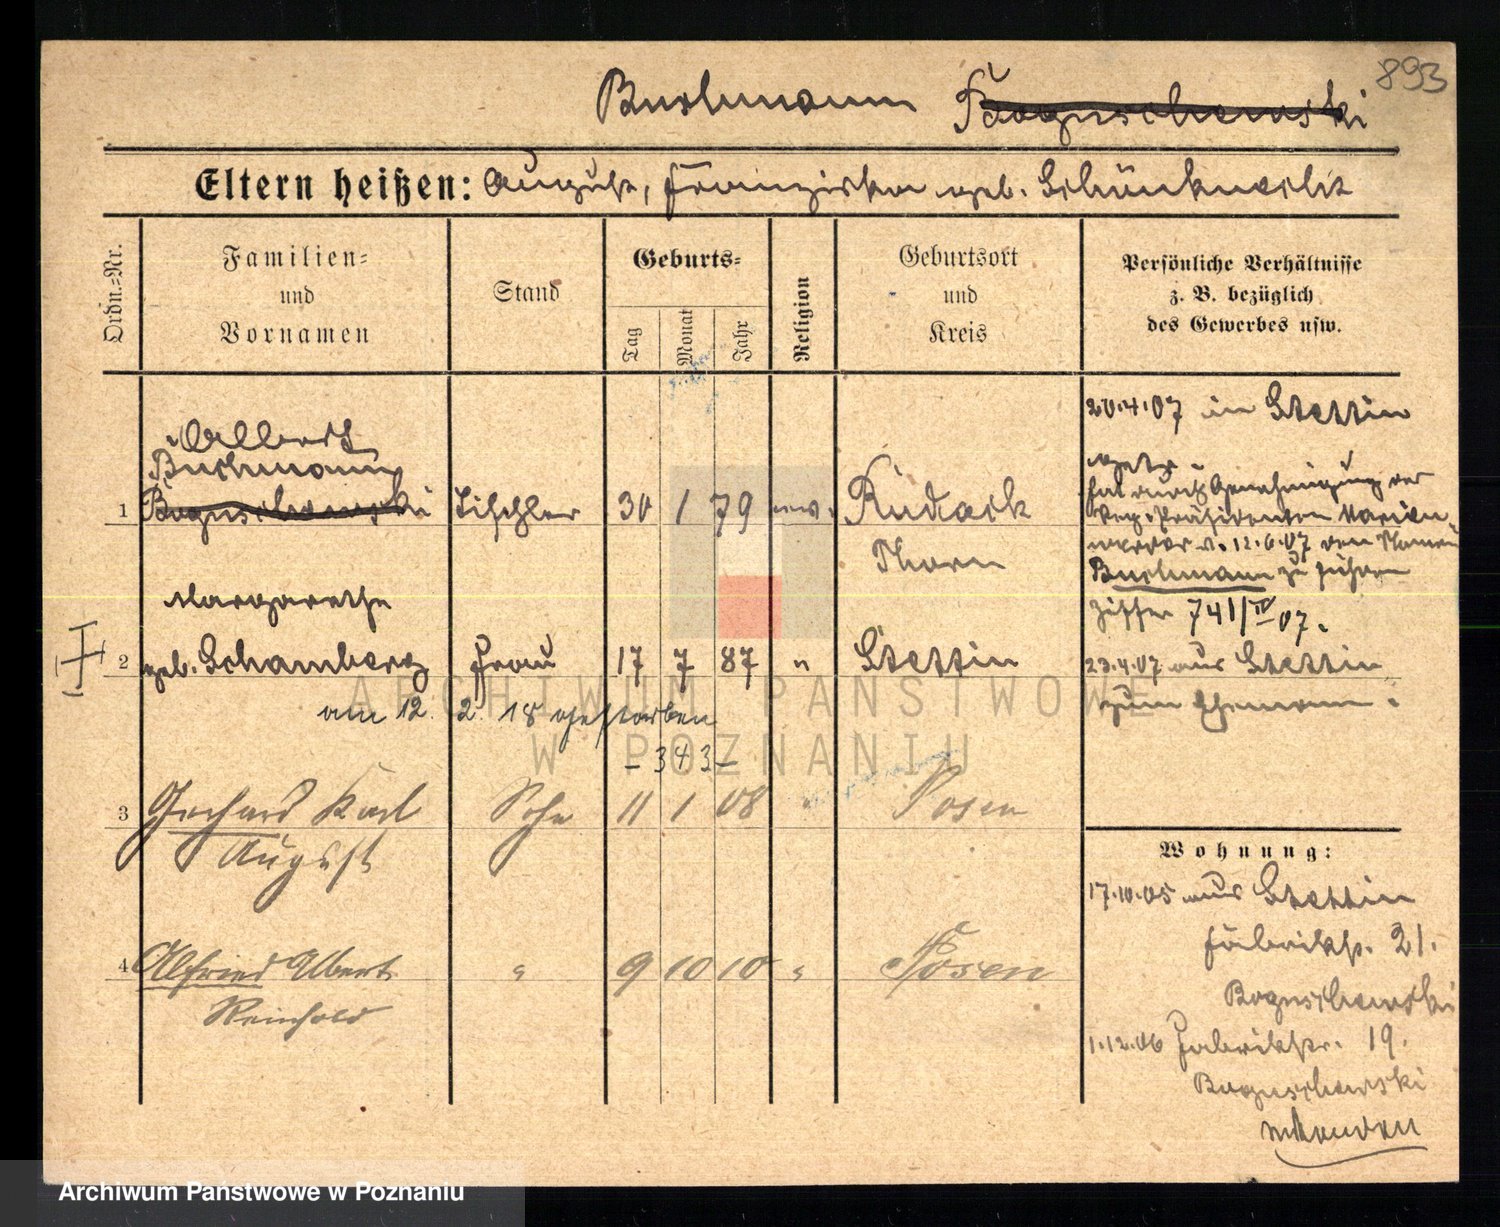 893
Buchmann Boguschewski
Eltern heißen: August, Franziska geb. Schönknecht
Ordn.-Nr.
Familien-
und
Vornamen
Stand
Geburts-
Tag
Monat
Jahr
Religion
Geburtsort
und
Kreis
Persönliche Verhältnisse
z. B. bezüglich
des Gewerbes usw.
Albert
Buchmann
1 Boguschewski Tischler 30 1 79 ev. Rudack
Thorn
20.4.07 in Stettin
hat durch Genehmigung des
Reg. Präsidenten Marien
werder v. 12.6.07 den Namen
Buchmann zu führen
Ziffer 741/IV 07.
Margarethe
2 geb. Schamberg Frau 17 7 87 " Stettin
23.4.07 aus Stettin
zum Ehemann.
am 12. 2. 18 gestorben
- 343 -
3 Gerhard Karl Sohn 11 1 08 Posen
August
4 Alfried Albert " 9 10 10 " Posen
Reinhold
Wohnung:
17.10.05 aus Stettin
Fabrikstr. 21.
Boguschewski
1.12.06 Fabrikstr. 19.
Boguschewski
ARCHIWUM PAŃSTWOWE
W POZNANIU
Archiwum Państwowe w Poznaniu